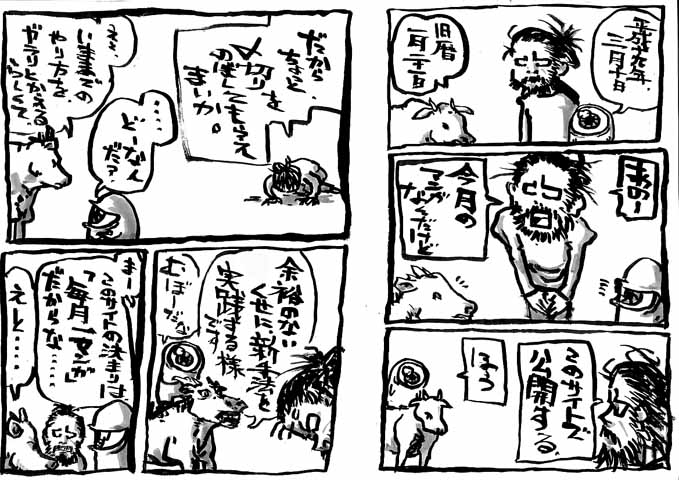 平成十九年、
三月十日
旧暦
一月二十一日
あのー
今月の
マンガ
なんだけど
このサイトで
公開する、
ほう
だから
ちょっと、
〆切りを
のばしてもらえ
まいか。
‥‥
どーなん
だ?
ええ、
いままでの
やり方を
ガラリとかえる
らしくて、
余裕のない
くせに新手法を
実践する様
です
むぼーだな
まー、
このサイトの決まりは
「毎月一マンガ」
だからな‥‥
えと‥‥